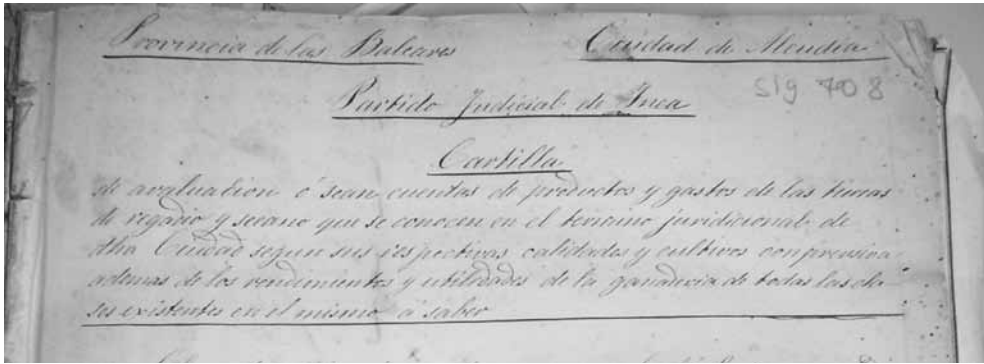 Provincia de las Baleares Ciudad de Alcudia
Sig 708
Partido Judicial de Inca
Cartilla
de avaluacion ó sean cuentas de productos y gastos de las tierras
de regadio y secano que se conocen en el termino juridicional de
dha Ciudad segun sus respectivas calidades y cultivos comprensiva
ademas de los rendimientos y utilidades de la ganaderia de todas las cla
ses existentes en el mismo á saber